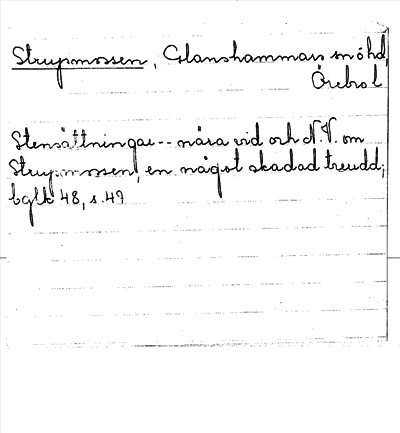 Strupmossen, Glanshammars snöhd,
Örebro l
Stensättningar -- nära vid och N.V. om
Strupmossen, en något skadad treudd;
bglk 48, s. 49